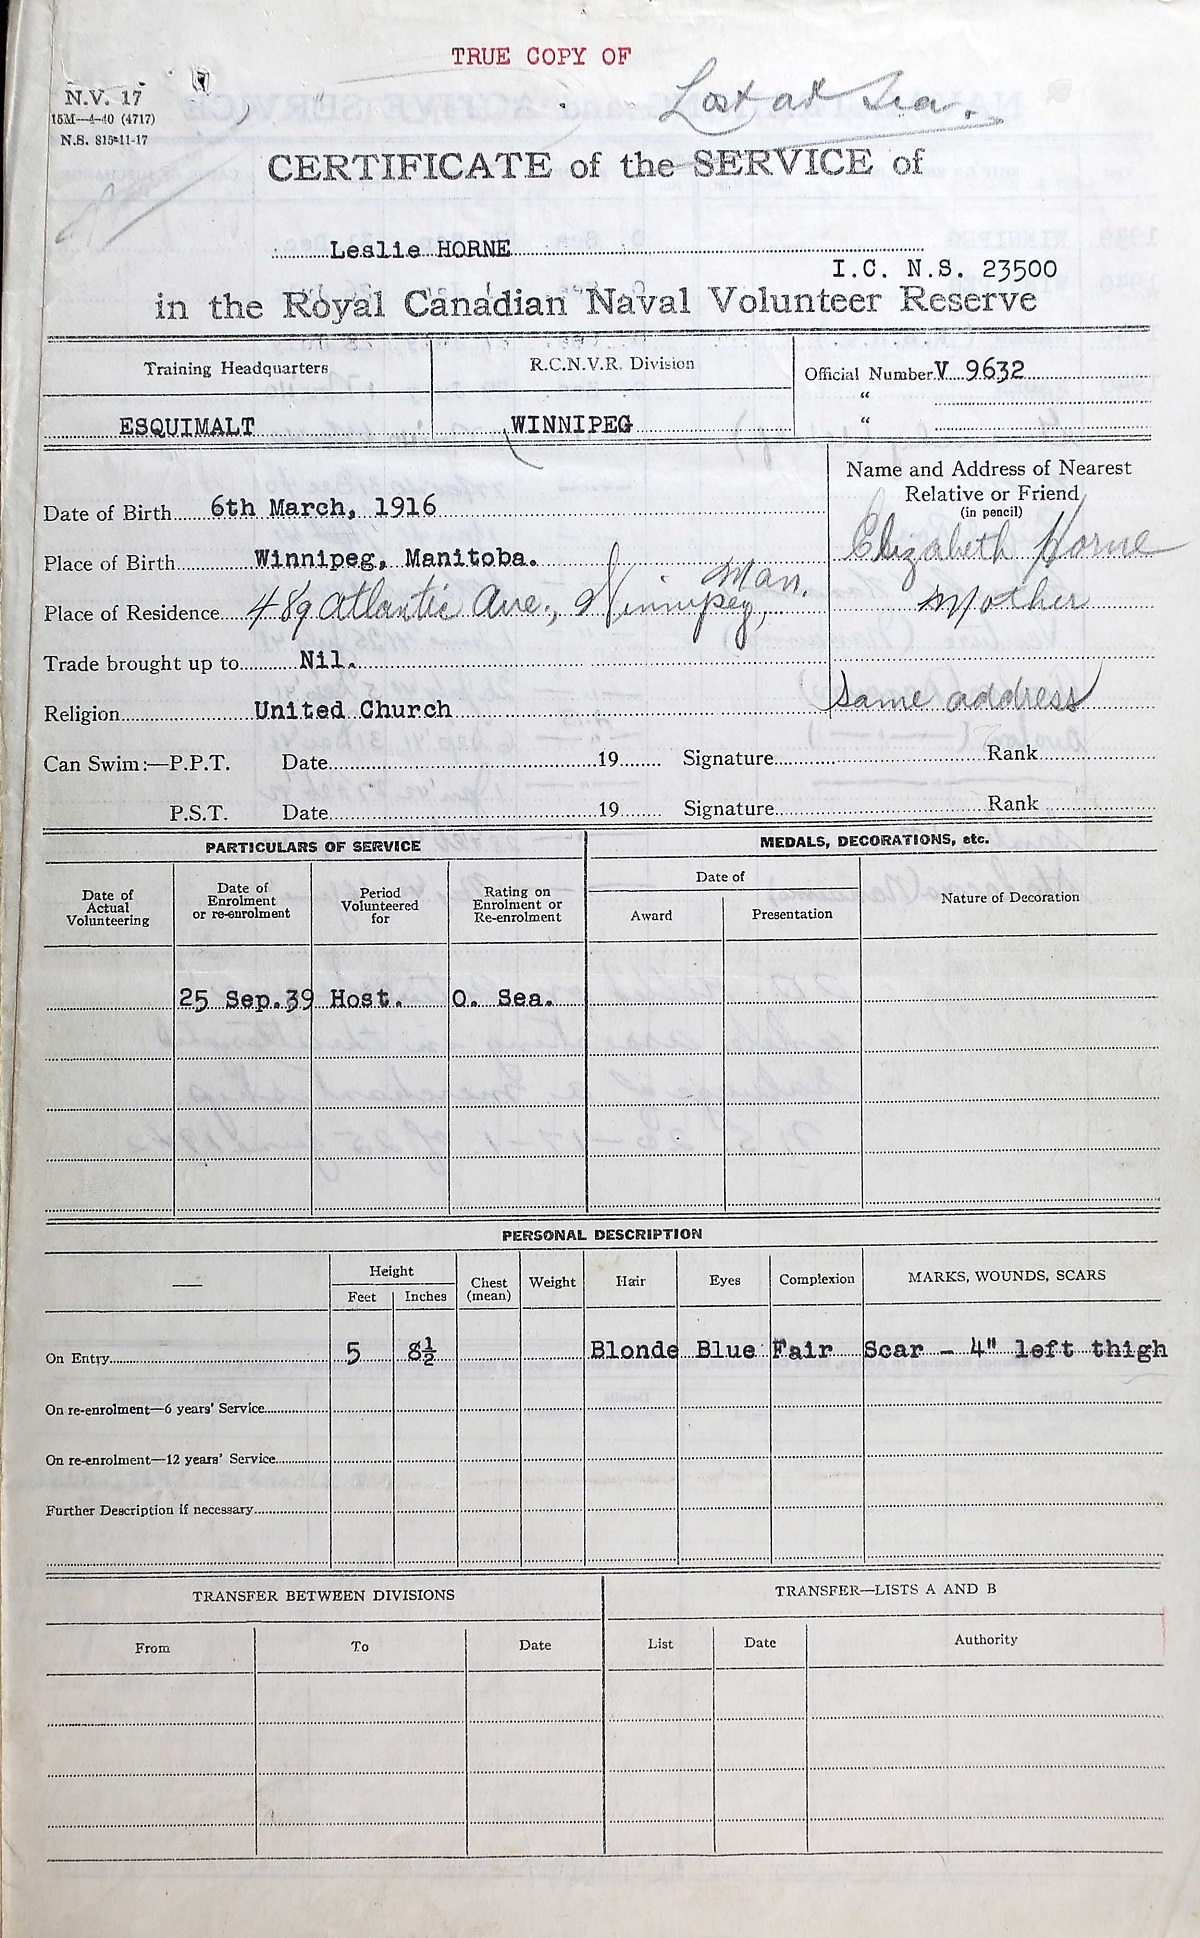 TRUE COPY OF
Lost at Sea.
N.V. 17
15M—4-40 (4717)
N.S. 815-11-17
CERTIFICATE of the SERVICE of
Leslie HORNE
I.C. N.S. 23500
in the Royal Canadian Naval Volunteer Reserve
Training Headquarters R.C.N.V.R. Division Official Number V 9632
"
ESQUIMALT WINNIPEG "
Name and Address of Nearest
Relative or Friend
(in pencil)
Date of Birth 6th March, 1916
Elizabeth Horne
Place of Birth Winnipeg, Manitoba.
Mother
Place of Residence 489 Atlantic Ave., Winnipeg, Man.
Trade brought up to Nil.
same address
Religion United Church
Can Swim:—P.P.T. Date 19 Signature Rank
P.S.T. Date 19 Signature Rank
PARTICULARS OF SERVICE MEDALS, DECORATIONS, etc.
Date of Actual Volunteering Date of Enrolment or re-enrolment Period Volunteered for Rating on Enrolment or Re-enrolment Date of Nature of Decoration
Award Presentation
25 Sep.39 Host. O. Sea.
PERSONAL DESCRIPTION
— Height Chest (mean) Weight Hair Eyes Complexion MARKS, WOUNDS, SCARS
Feet Inches
On Entry 5 8½ Blonde Blue Fair Scar - 4" left thigh
On re-enrolment—6 years' Service
On re-enrolment—12 years' Service
Further Description if necessary
TRANSFER BETWEEN DIVISIONS TRANSFER—LISTS A AND B
From To Date List Date Authority